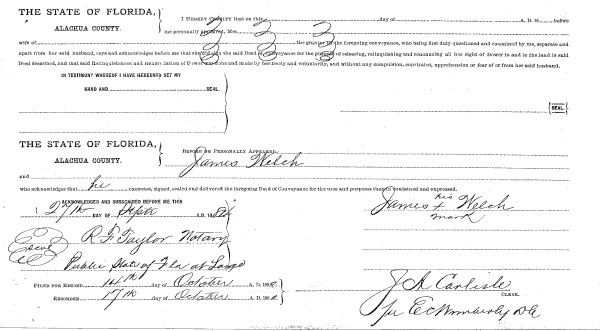 THE STATE OF FLORIDA,
ALACHUA COUNTY.
I HEREBY CERTIFY that on this day of A. D. 18 before
me personally appeared, Mrs.
wife of the grantor in the foregoing conveyance, who being first duly questioned and examined by me, separate and
apart from her said husband, says and acknowledges before me that she did sign the said Deed of Conveyance for the purpose of releasing, relinquishing and renouncing all her right of Dower in and to the land in said
Deed described, and that said Relinquishment and Renunciation of Dower was done and made by her freely and voluntarily, and without any compulsion, constraint, apprehension or fear of or from her said husband.
IN TESTIMONY WHEREOF I HAVE HEREUNTO SET MY
HAND AND SEAL.
SEAL.
THE STATE OF FLORIDA,
ALACHUA COUNTY.
BEFORE ME PERSONALLY APPEARED
James Welch
and
who acknowledges that he executed, signed, sealed and delivered the foregoing Deed of Conveyance for the uses and purposes therein contained and expressed.
ACKNOWLEDGED AND SUBSCRIBED BEFORE ME THIS
27th DAY OF Sept A.D. 18
James his x mark Welch
R. F. Taylor Notary
Public State of Fla at Large
FILED FOR RECORD 14th day of October A. D. 18
RECORDED 17th day of October A. D. 18
J A Carlisle
CLERK.
per E C Wimberly D C